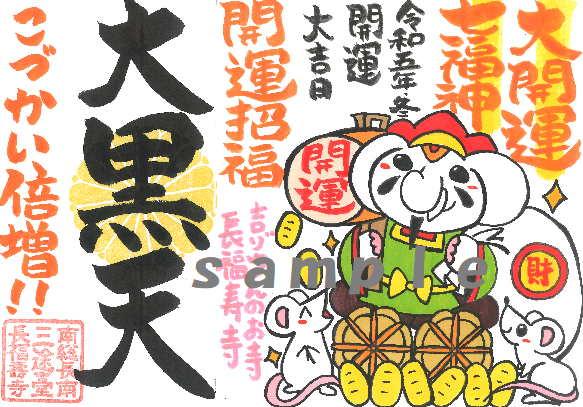 大開運
七福神
令和五年、冬
開運
大吉日
開運招福
開運
財
吉ゾウくんのお寺
長福寿寺
大黒天
こづかい倍増!!
南総長南
三途台
長福寿寺
sample